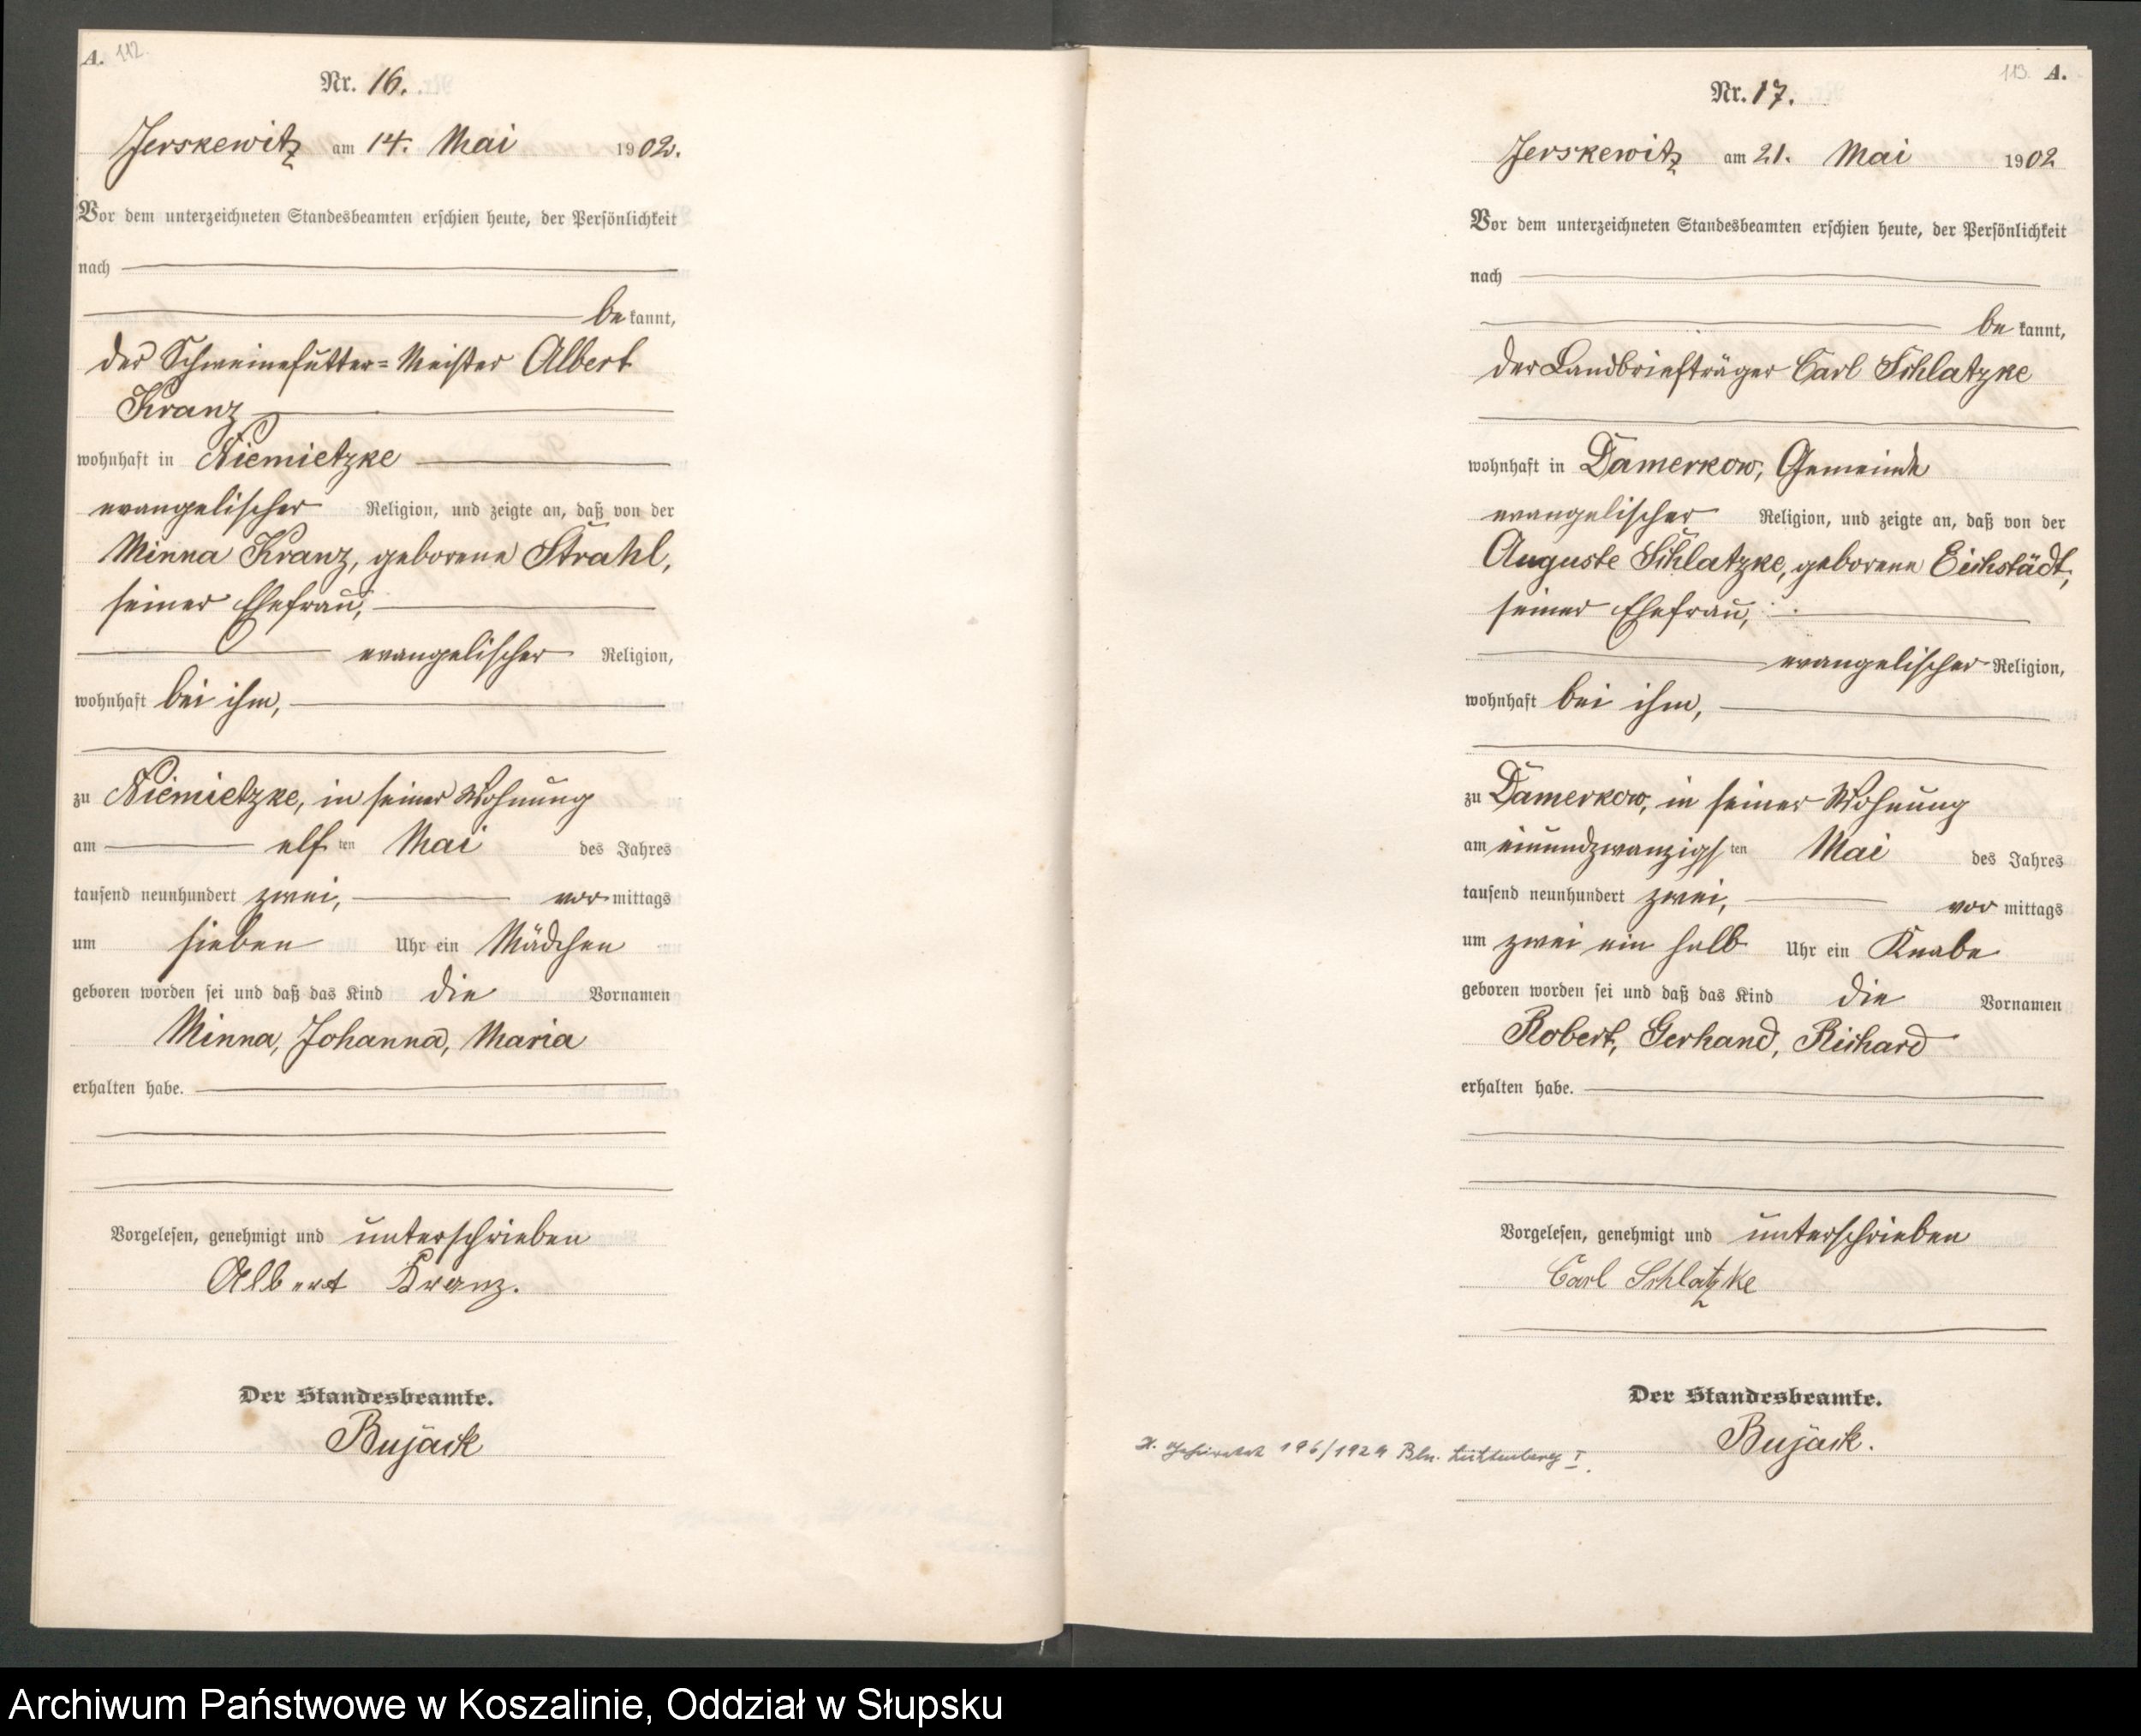 A. 112.
Nr. 16.
Jerskewitz am 14. Mai 1902.
Vor dem unterzeichneten Standesbeamten erschien heute, der Persönlichkeit
nach
be kannt,
der Schweinefutter=Meister Albert
Kranz
wohnhaft in Niemietzke
evangelischer Religion, und zeigte an, daß von der
Minna Kranz, geborene Strahl,
seiner Ehefrau,
evangelischer Religion,
wohnhaft bei ihm,
zu Niemietzke, in seiner Wohnung
am elf ten Mai des Jahres
tausend neunhundert zwei, vor mittags
um sieben Uhr ein Mädchen
geboren worden sei und daß das Kind die Vornamen
Minna, Johanna, Maria
erhalten habe.
Vorgelesen, genehmigt und unterschrieben
Albert Kranz.
Der Standesbeamte.
Bujack
113. A.
Nr. 17.
Jerskewitz am 21. Mai 1902
Vor dem unterzeichneten Standesbeamten erschien heute, der Persönlichkeit
nach
be kannt,
der Landbriefträger Carl Schlatzke
wohnhaft in Damerkow, Gemeinde
evangelischer Religion, und zeigte an, daß von der
Auguste Schlatzke, geborene Eichstädt,
seiner Ehefrau,
evangelischer Religion,
wohnhaft bei ihm,
zu Damerkow, in seiner Wohnung
am einundzwanzigs ten Mai des Jahres
tausend neunhundert zwei, vor mittags
um zwei ein halb Uhr ein Knabe
geboren worden sei und daß das Kind die Vornamen
Robert, Gerhand, Richard
erhalten habe.
Vorgelesen, genehmigt und unterschrieben
Carl Schlatzke
Der Standesbeamte.
Bujack.
geheiratet 196/1924 Bln. Lichtenberg I.
Archiwum Państwowe w Koszalinie, Oddział w Słupsku